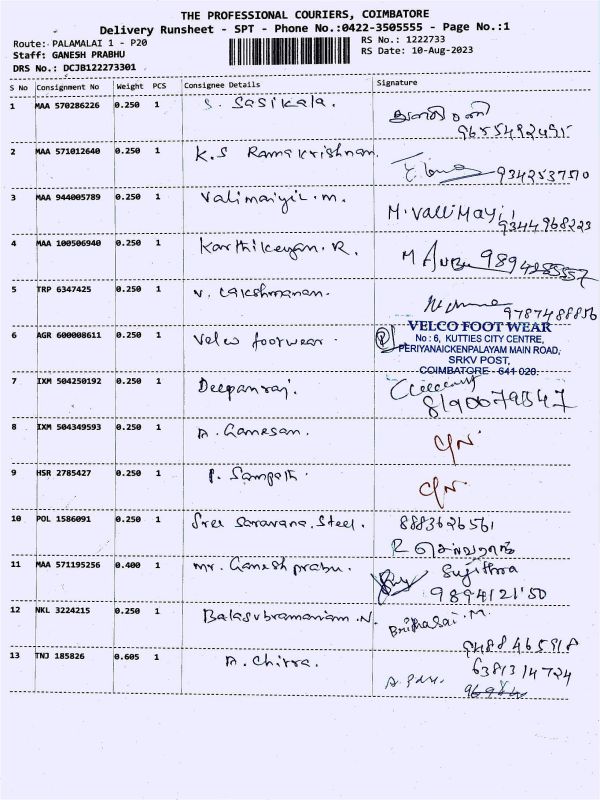 THE PROFESSIONAL COURIERS, COIMBATORE
Delivery Runsheet - SPT - Phone No.:0422-3505555 - Page No.:1
Route: PALAMALAI 1 - P20 RS No.: 1222733
Staff: GANESH PRABHU RS Date: 10-Aug-2023
DRS No.: DCJB122273301
S No Consignment No Weight PCS Consignee Details Signature
1 MAA 570286226 0.250 1 S. Sasikala.
9655492491
2 MAA 571012640 0.250 1 K.S Ramakrishnan.
9342537570
3 MAA 944005789 0.250 1 Valimaiyil.m. M. ValliMayil
9344968223
4 MAA 100506940 0.250 1 Karthikeyan. R. 9894285557
5 TRP 6347425 0.250 1 V. Lakshmanan.
9787488856
6 AGR 600008611 0.250 1 Velco footwear.
VELCO FOOT WEAR
No : 6, KUTTIES CITY CENTRE,
PERIYANAICKENPALAYAM MAIN ROAD,
SRKV POST,
COIMBATORE - 641 020.
7 IXM 504250192 0.250 1 Deepanraj.
8190079347
8 IXM 504349593 0.250 1 A. Ganesan. C/N
9 HSR 2785427 0.250 1 P. Sampath. C/N
10 POL 1586091 0.250 1 Sree Saravana Steel. 8883626561
R செல்வராஜ்
11 MAA 571195256 0.400 1 mr. Ganesh prabu. Sujithra
989412150
12 NKL 3224215 0.250 1 Balasubramaniam.N.
9488465918
13 TNJ 185826 0.605 1 A. Chitra. 6381314724